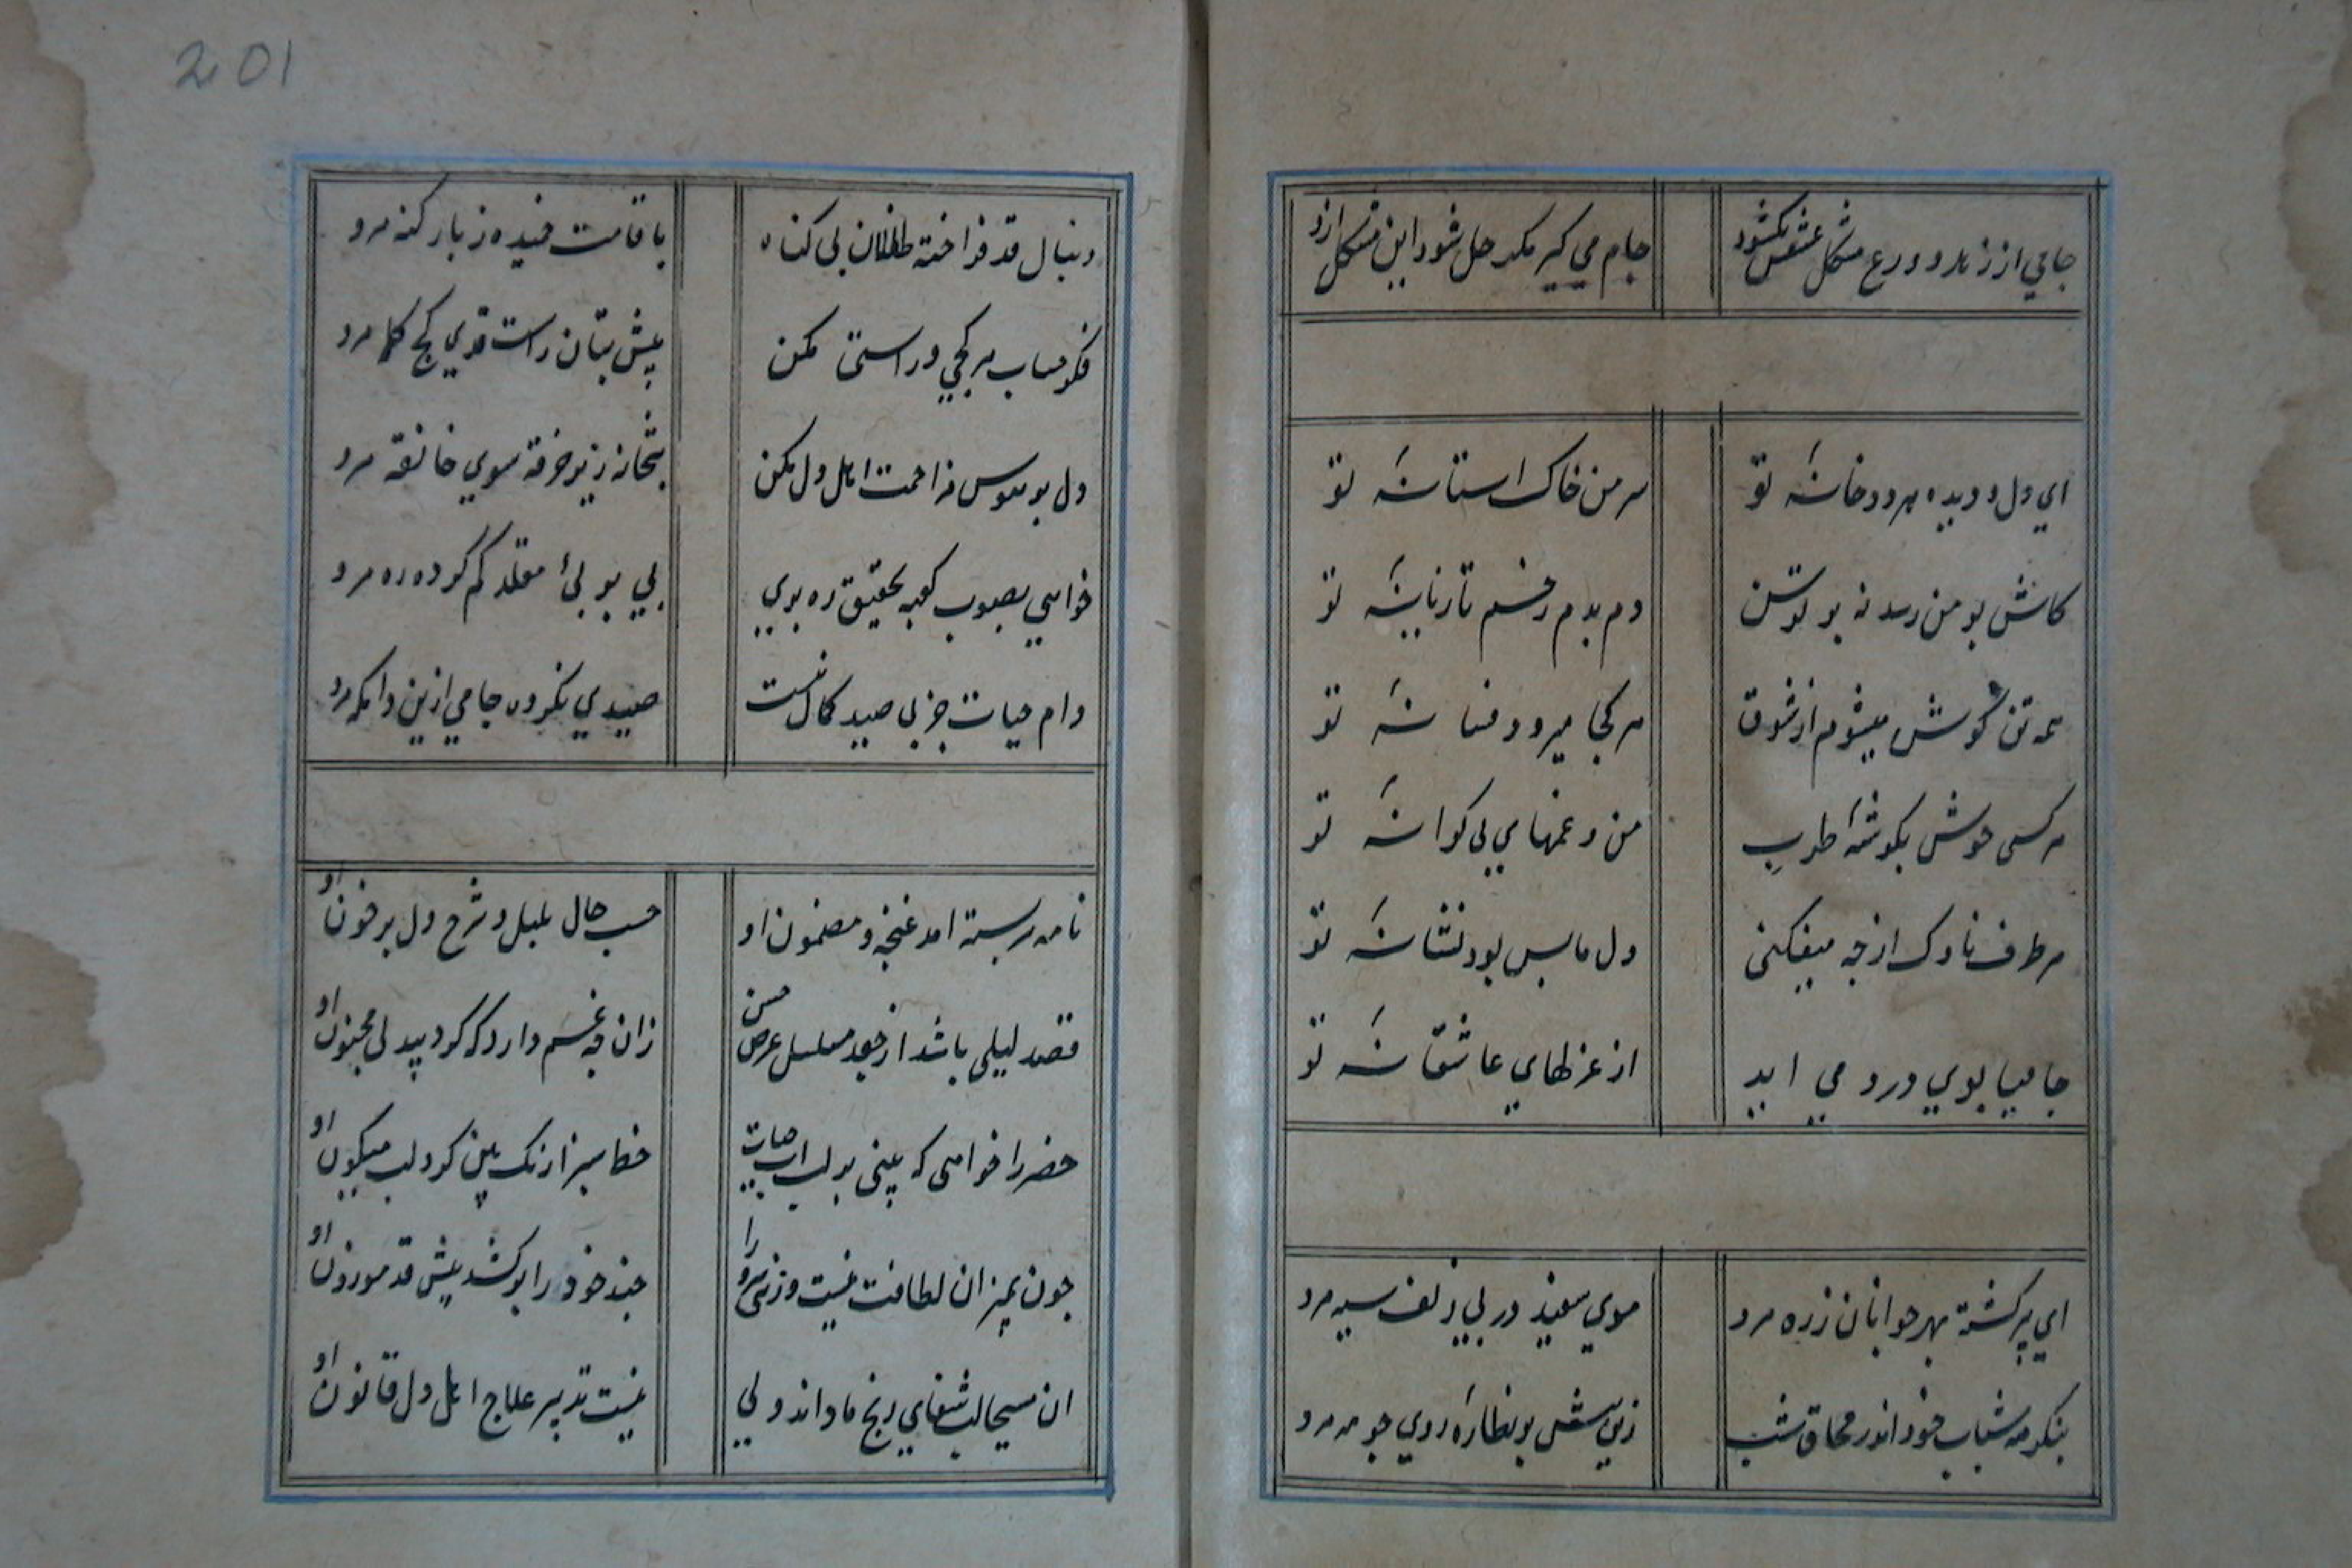 جامي از زهد و ورع مشکل عشقش نکشود
جام مي کير مکر حل شود اين مشکل ازو
اي دل و ديده هر دو خانهٔ تو
سر من خاک استانهٔ تو
کاش بر من رسد نه بر توسن
دم بدم زخم تازيانهٔ تو
همه تن کوش ميشوم از شوق
هر کجا ميرود فسانهٔ تو
هر کسي خوش بکوشهٔ طرب
من و غمهاي بي کرانهٔ تو
هر طرف ناوک از چه ميفکني
دل ما بس بود نشانهٔ تو
جاميا بوي درد مي ايد
از غزلهاي عاشقانهٔ تو
اي پير کشته بهر جوانان ز ره مرو
موي سفيد در پي زلف سيه مرو
بنکر مه شباب خود اندر محاق شيب
زين سش بر نظارهٔ روي چو مه مرو
201
دنبال قد فراخته طفلان بي کناه
با قامت خميده ز بار کنه مرو
فکر حساب هر کجي و راستي مکن
پيش بتان راست قدي کج کلا مرو
دل بر هوس مزاحمت اهل دل مکن
بتخانه زير خرقه سوي خانقه مرو
خواهي بصوب کعبه تحقيق ره بري
پي بر پئ مقلد کم کرده ره مرو
دام حيات جز پي صيد کمال نيست
صيدي نکرده جامي ازين دامکه مرو
نامه سربسته امد غنچه و مضمون او
حسب حال بلبل و شرح دل پر خون او
قصد ليلي باشد از جعد مسلسل عرض حسن
زان چه غم دارد که کردد پيدلي مجنون او
خضر را خواهي که بيني بر لب اب حيات
خط سبز ارنک بين کرد لب ميکون او
چون بميزان لطافت نيست وزني سرو را
چند خود را برکشد پيش قد موزون او
ان مسيحا لب شفاي رنج ما داند ولي
نيست تدبير علاج اهل دل قانون او